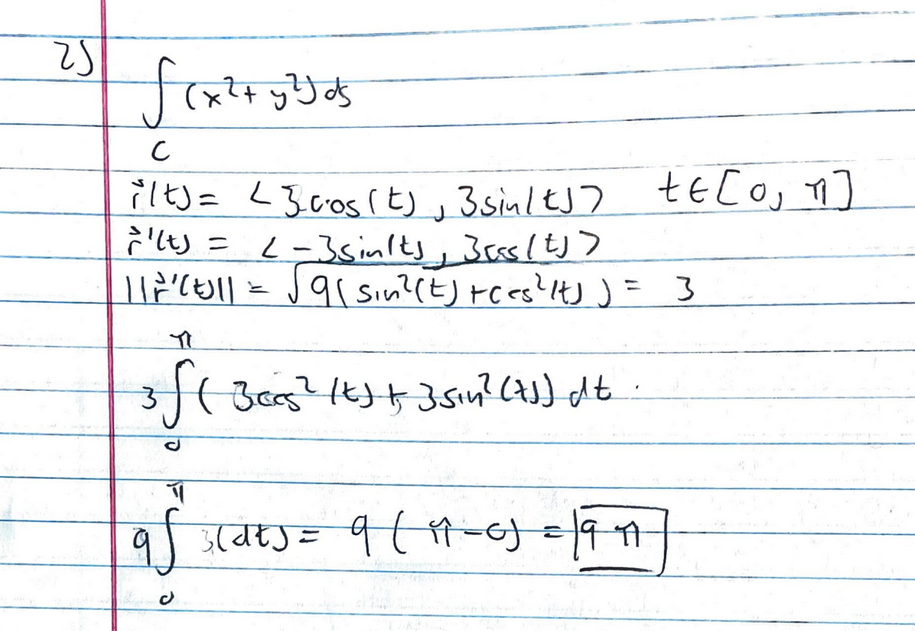 2)
∫_C (x²+ y²) ds
r⃗(t) = <3cos(t), 3sin(t)> t∈[0, π]
r⃗'(t) = <-3sin(t), 3cos(t)>
||r⃗'(t)|| = √9(sin²(t)+cos²(t)) = 3
3∫₀^π (3cos²(t) + 3sin²(t)) dt.
9∫₀^π (dt) = 9(π-0) = 9π